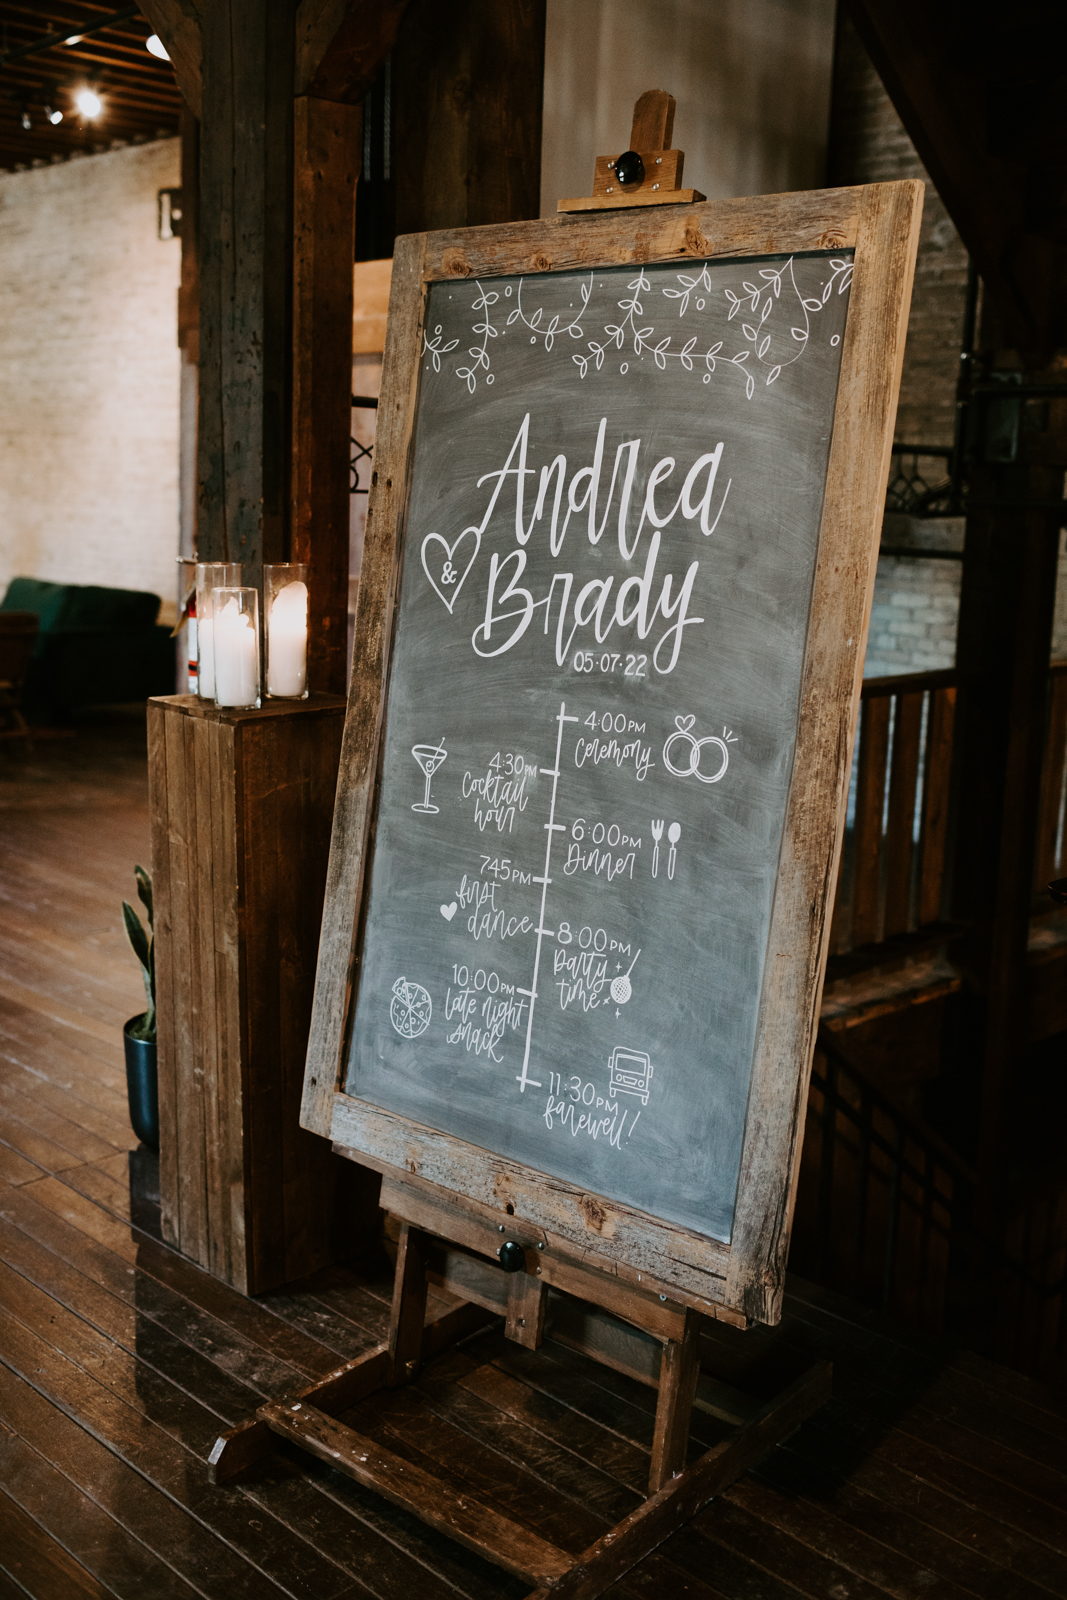 Andrea
&
Brady
05·07·22
4:00PM
Ceremony
4:30PM
Cocktail
hour
6:00PM
Dinner
745PM
first
dance
8:00PM
party
time
10:00PM
late night
snack
11:30PM
farewell!